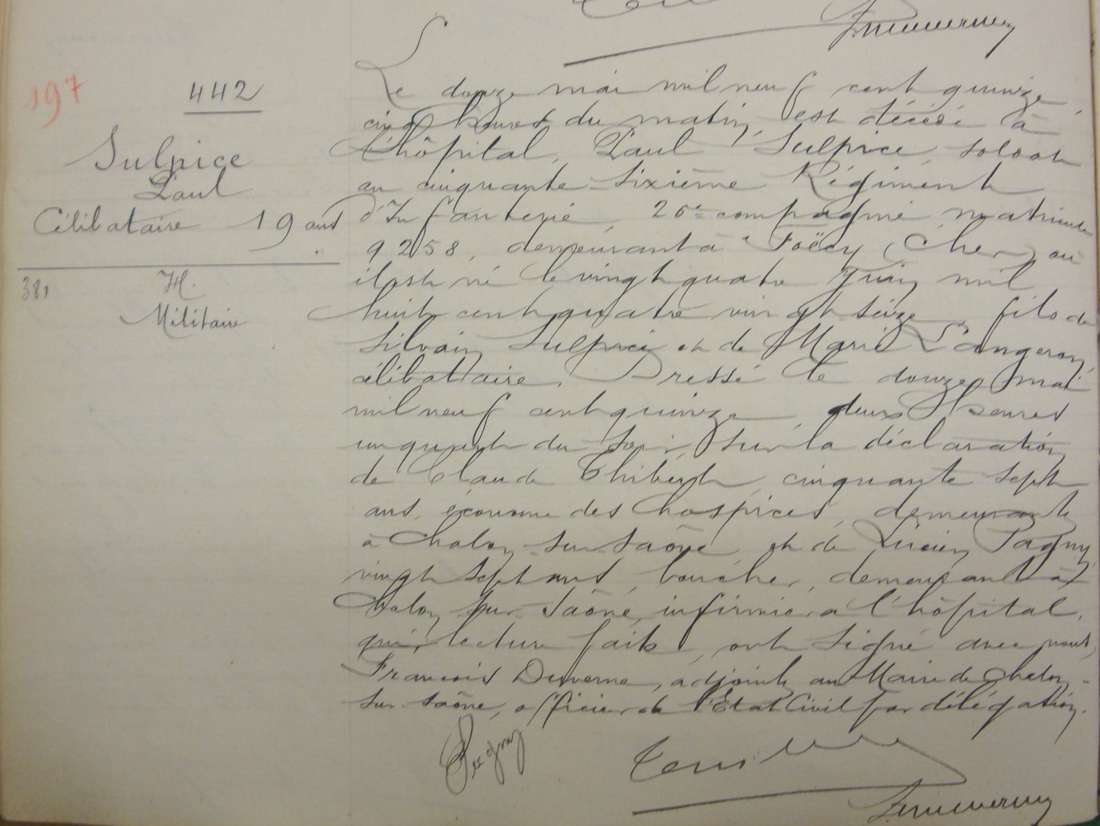 197
442
Sulpice
Paul
Célibataire 19 ans
381
H.
Militaire
Le douze mai mil neuf cent quinze
cinq heures du matin, est décédé à
l'hôpital, Paul Sulpice, soldat
au cinquante-sixième Régiment
d'Infanterie 26e compagnie matricule
9258, demeurant à Foëcy (Cher) où
il est né le vingt quatre Juin mil
huit cent quatre vingt seize, fils de
Silvain Sulpice et de Marie Langeron,
célibataire. Dressé le douze mai
mil neuf cent quinze deux heures
un quart du soir, sur la déclaration
de Claude Thibert, cinquante sept
ans, économe des hospices, demeurant
à Chalon-sur-Saône et de Lucien Pagny,
vingt sept ans, boucher, demeurant à
Chalon sur Saône, infirmier à l'hôpital,
qui, lecture faite, ont signé avec nous,
François Duverne, adjoint au Maire de Chalon-
sur-Saône, officier de l'Etat Civil par délégation.